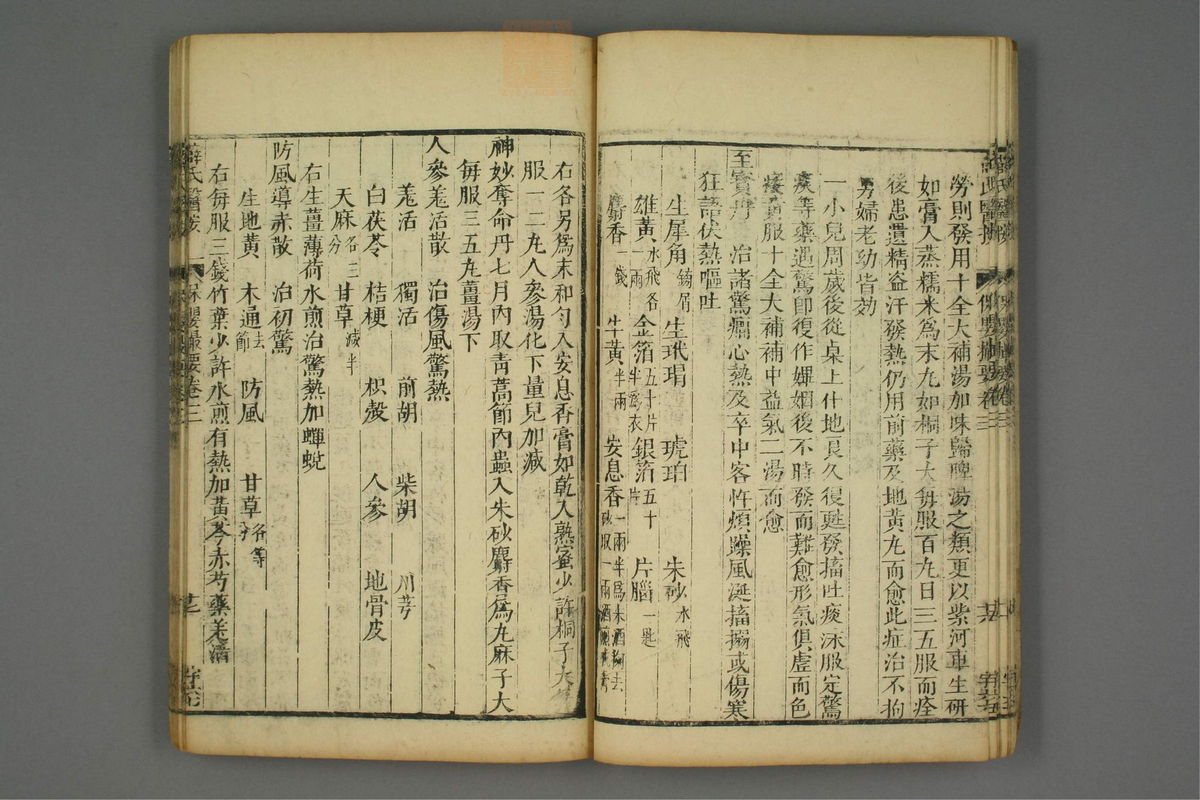 勞則發用十全大補湯加味歸脾湯之類更以紫河車生研
如膏入蒸糯米爲末丸如桐子大每服百九日三五服而痊
後患遺精盗汗發熱仍用前藥及地黄丸而愈此症治不拘
男婦老幼皆効
一小兒周歲後從桌上仆地良久復甦發搐吐痰沫服定驚
痰等藥遇驚即復作娶婚後不時發而難愈形氣俱虚而色
痿黄服十全大補補中益氣二湯而愈
至寳丹 治諸驚癎心熱及卒中客忤煩躁風涎搐搦或傷寒
狂語伏熱嘔吐
生犀角鎊屑 生玳瑁 琥珀 朱砂水飛
雄黄水飛各一兩 金箔五十片半爲衣 銀箔五十片 片腦一匙
麝香一錢 牛黄半兩 安息香一兩半爲末酒去砂取一兩酒
薛氏醫按 保嬰撮要卷三
右各另爲末和匀入安息香膏如乾入熟蜜少許桐子大
服一二九人參湯化下量兒加减
神妙奪命丹七月内取青蒿節内蟲入朱砂麝香爲丸麻子大
每服三五丸薑湯下
人參羌活散 治傷風驚熱
羌活 獨活 前胡 柴胡 川芎
白茯苓 桔梗 枳殻 人參 地骨皮
天麻各三分 甘草减半
右生薑薄荷水煎治驚熱加蟬蛻
防風導赤散 治初驚
生地黄 木通去節 防風 甘草各等分
右每服三錢竹葉少許水煎有熱加黄芩赤芍藥羌活
薛氏醫按 保嬰撮要卷三